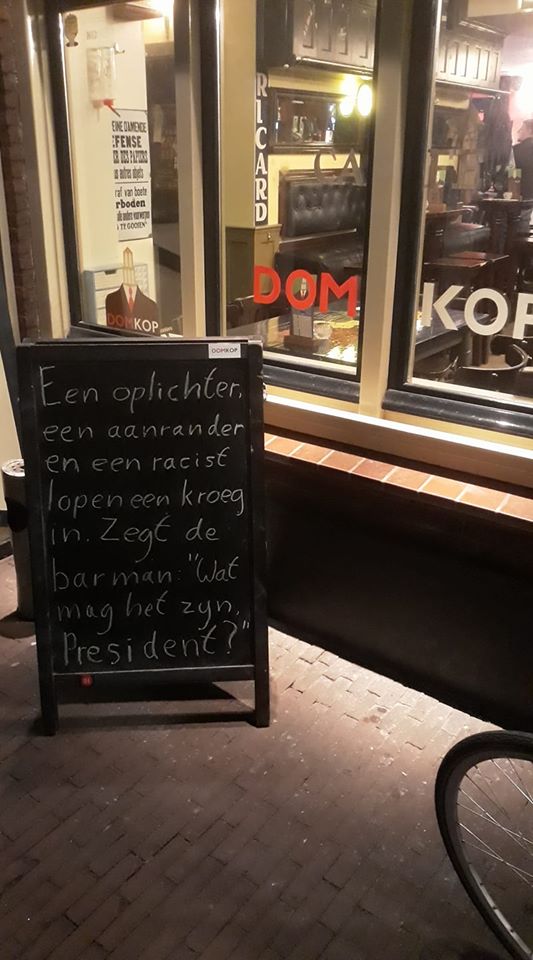 EINE DAMENDE
FENSE
ER DES PAPIERS
ou autres objets
raf van boete
rboden
alle andere voorwerpen
TE GOOIEN
RICARD
CA
DOM KOP
DOMKOP
DOMKOP
Een oplichter,
een aanrander
en een racist
lopen een kroeg
in. Zegt de
barman: "Wat
mag het zyn,
President?"